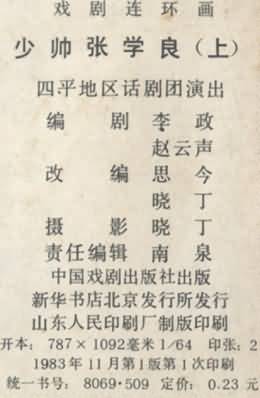 戏剧连环画
少帅张学良（上）
四平地区话剧团演出
编 剧 李 政
赵云声
改 编 思 今
晓 丁
摄 影 晓 丁
责任编辑 南 泉
中国戏剧出版社出版
新华书店北京发行所发行
山东人民印刷厂制版印刷
开本：787×1092毫米1/64 印张：2
1983年11月第1版第1次印刷
统一书号：8069·509 定价：0.23元